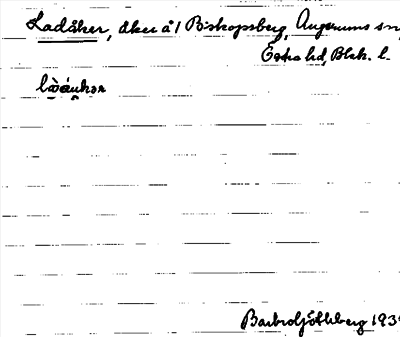 Ladåker, åker å 1 Biskopsberg, Augerums sn,
Östra hd, Blek. l.
Barbro Götlberg 193